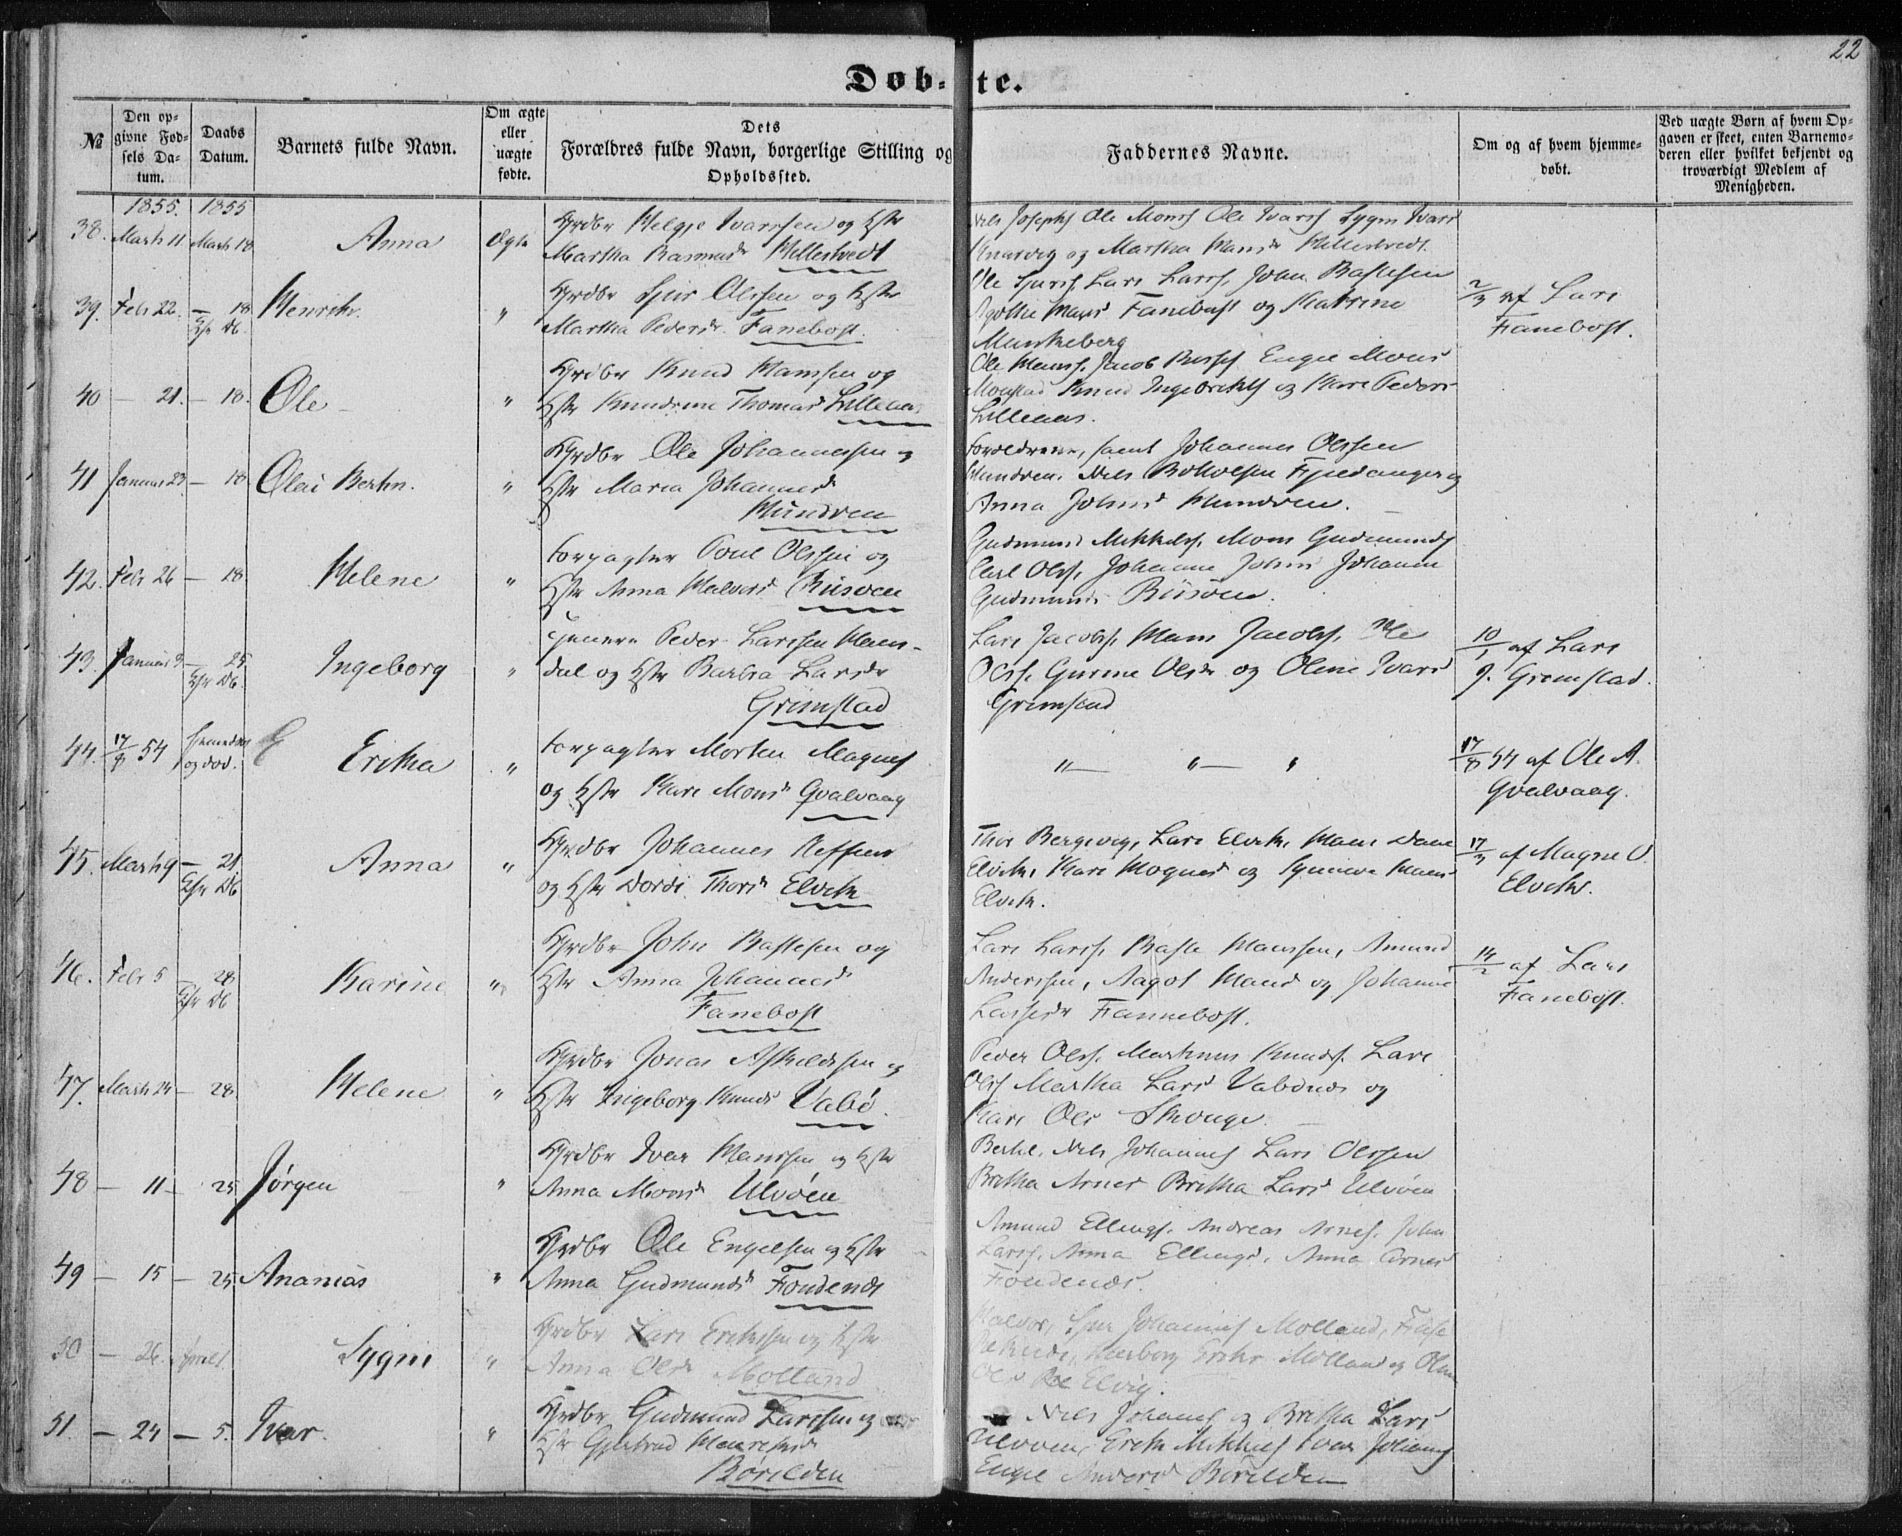 22
Døb-te.
№
Den op-
givne Fød-
sels Da-
tum.
Daabs
Datum.
Barnets fulde Navn.
Om ægte
eller
uægte
fødte.
Dets
Forældres fulde Navn, borgerlige Stilling og
Opholdssted.
Faddernes Navne.
Om og af hvem hjemme-
døbt.
Ved uægte Børn af hvem Op-
gaven er skeet, enten Barnemo-
deren eller hvilket bekjendt og
troværdigt Medlem af
Menigheden.
1855. 1855
38. Marts 11 Marts 18 Anna Ægte Grdbr Helgje Ivarssen og Hstr
Martha Rasmusdr Hillestvedt
Niels Josephs Ole Mons Ole Ivars Sygni Ivars
og Martha Mansdr Hillestvedt.
39. Febr 22. — 18 Henrik. " Grdbr Sjur Olssen og Hstr
Martha Pedersdr Fanebost.
Ole Sjurs. Lars Larss. John Bastesen
Mansd Fanebust og Katrine
Munkeberg
2/3 af Lars
Fanebost.
40 — 21. — 18. Ole " Grdbr Knud Hanssen og
Hstr Thomasd Lilleaas
Ole Jacob Engel Mons
Knud Ingebrikts og Kari Peders
Lilleaas.
41 Januar 23 — 18 Olai Bertin. " Grdbr Ole Johannessen og
Hstr Maria Johannesd
Hundven
Forældrene, samt Johannes Olssen
Hundven. Niels Fjeldanger og
Anna Johnsd Hundven.
42. Febr 26 — 18 Helene " Forpagter Poul Olssen og
Hstr Anna Halvorsd Riisøen
Gudmund Mikkels. Mons Gudmunds
Ols. Johanne Johns Johanne
Gudmunds Riisøen.
43. Januar 9. — 25 Ingeborg " Peder Larssen Hans-
dal og Hstr Barbra Larsdr
Grimstad
Lars Jacobs. Mans Jacobs. Ole
Olss. Gurine Olsdr og Oline Ivarsd
Grimstad
10/1 af Lars
J. Grimstad.
44. 17/8 54 hjemedøbt
og død. Erikka " Forpagter Morten Magnes
og Hstr Kari Monsd Qvalvaag
" " "
17/8 54 af Ole A.
Qvalvaag.
45. Marts 9 — 21 Anna " Grdbr Johannes
og Hstr Dordi Thorsd Elvik
Thor Bergsvig, Lars Elvik, Mons
Elvik, Kari Mognesd og Synneve Mans
Elvik.
17/3 af Magne O.
Elvik.
46. Febr 5 — 28 Karine " Grdbr John Bastesen og
Hstr Anna Johannesd
Fanebost
Lars Larss. Baste Manssen, Amund
Anderssen, Aagot Mansd og Johanne
Lassesdr Fannebost.
14/2 af Lars
Fanebost.
47. Marts 24 — 28 Helene " Grdbr Jonas Askeldssen og
Hstr Ingeborg Knudsd Vabø.
Peder Olss. Martinus Knuds. Lars
Olss Martha Larsd Vabønæs og
Kari Ols Skouge.
48 — 11 — 25 Jørgen " Grdbr Ivar Manssen og Hstr
Anna Monsd Ulvøen
Bertel. Niels Johannes Lars Olssen
Britha Arnes Britha Larsd Ulvøen
49 — 15 — 25 Ananias " Grdbr Ole Engelsen og Hstr
Anna Gudmundsdr Fondenæs
Amund Ellings. Andreas Arnes. John
Larss. Anna Ellingsd. Anna Arnes
Fondenæs.
50 — 26. April 1 Sygni " Grdbr Lars Erikssen og Hstr
Anna Olsdr Molland
Sjur Johannes Molland,
Molland og
Ols Elvig.
51. — 24 — 5. Ivar. " Grdbr Gudmund Larssen og
Hstr Gjertrud
Børilden
Niels Johannes og Britha Lars
Ulvøen, Erik Mikkels Ivar Johannes
Engel Andersd Børilden